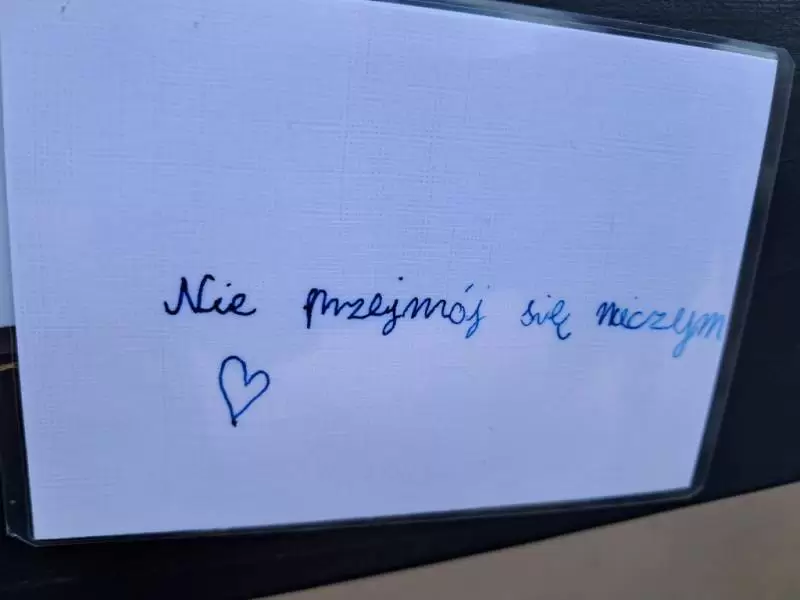 Nie przejmój się niczym